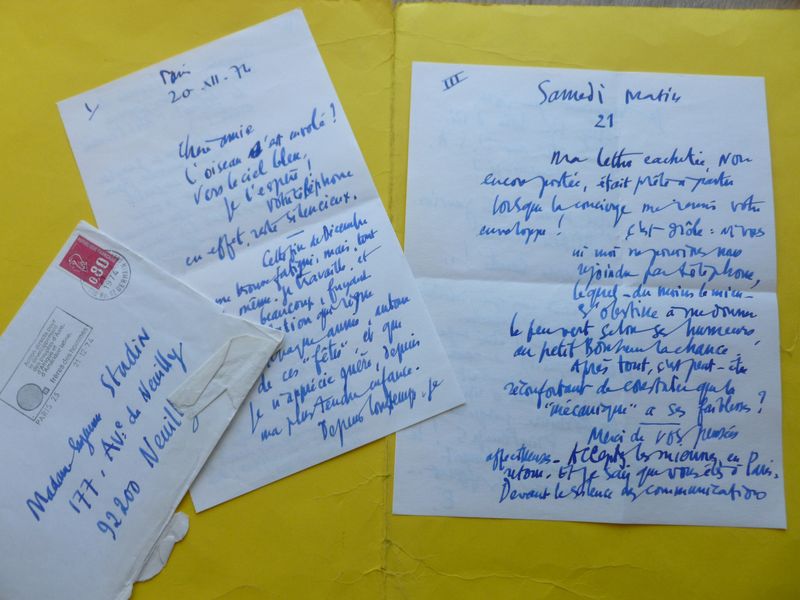 I
Paris
20-XII-74
Chère amie
L'oiseau s'est envolé?
Vers le ciel bleu,
Je l'espère!
Votre téléphone
en effet, reste silencieux.
Cette fin de Décembre
me trouve fatigué, mais, tout
même, je travaille. et
beaucoup,
que règne
chaque année, autour
de ces "fêtes" et que
Je n'apprécie guère, depuis
ma plus tendre enfance.
Depuis longtemps, je
III
Samedi matin
21
Ma lettre cachetée, non
encore postée, était prête à partir
lorsque la concierge me remis votre
enveloppe! C'est drôle: ni vous
ni moi ne pouvions nous
rejoindre par téléphone,
lequel - du moins le mien -
s'obstine à me donner
le feu vert selon ses humeurs
au petit Bonheur la chance!
Après tout, c'est peut-être
réconfortant de constater que le
"mécanique" a ses faiblesses?
Merci de vos pensées
affectueuses - Acceptez les miennes, en
retour. Et je sais que vous êtes à Paris.
Devant le silence des communications
0,80
1974
PARIS 23
21.12.74
Madame Suzanne
177, Ave de Neuilly
92200 Neuilly